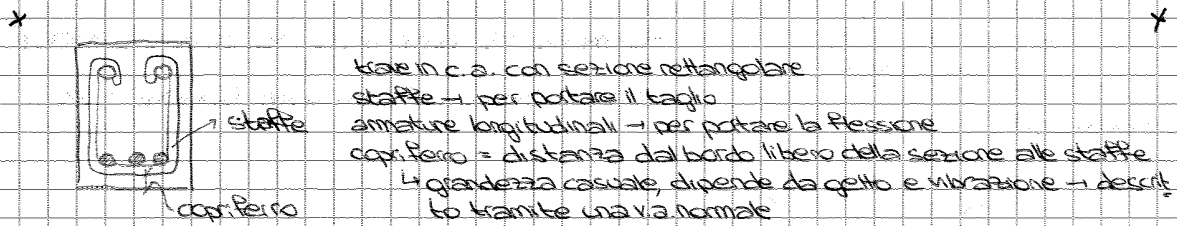 trave in c.a. con sezione rettangolare
staffe → per portare il taglio
staffe
armature longitudinali → per portare la flessione
copriferro = distanza dal bordo libero della sezione alle staffe
↳ grandezza casuale, dipende da getto e vibrazione → descrit
to tramite una v.a. normale
copriferro